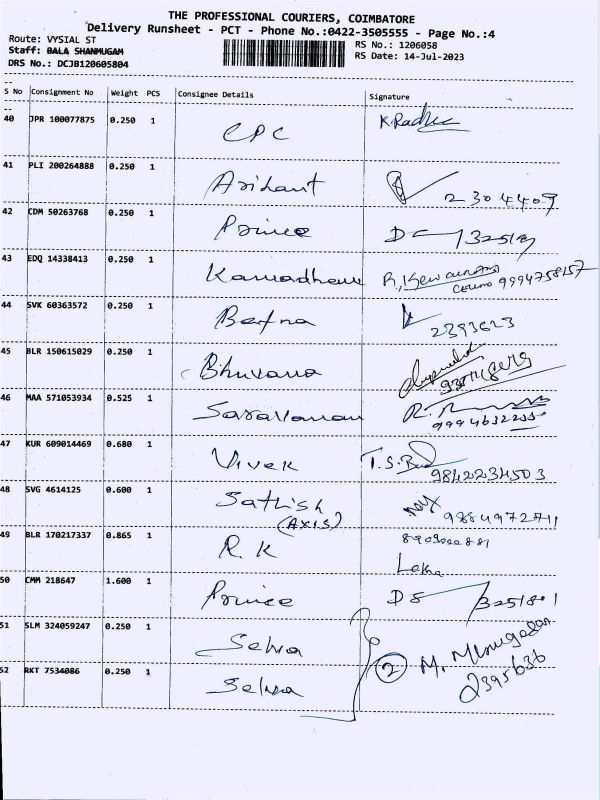 THE PROFESSIONAL COURIERS, COIMBATORE
Delivery Runsheet - PCT - Phone No.:0422-3505555 - Page No.:4
Route: VYSIAL ST
RS No.: 1206058
Staff: BALA SHANMUGAM
RS Date: 14-Jul-2023
DRS No.: DCJB120605804
S No Consignment No Weight PCS Consignee Details Signature
40 JPR 100077875 0.250 1 CPC K.Radha
41 PLI 200264888 0.250 1 Arihant 2304409
42 CDM 50263768 0.250 1 Prince
43 EDQ 14338413 0.250 1 9994758157
44 SVK 60363572 0.250 1 2393623
45 BLR 150615029 0.250 1 Bhuvana
46 MAA 571053934 0.525 1 Saravanan
47 KUR 609014469 0.680 1 Vivek T.S. 9842234503
48 SVG 4614125 0.600 1 Sathish
(AXIS)
49 BLR 170217337 0.865 1 R.K
50 CMM 218647 1.600 1 Prince
51 SLM 324059247 0.250 1 Selva
52 RKT 7534086 0.250 1 Selva 2 M. 2395636